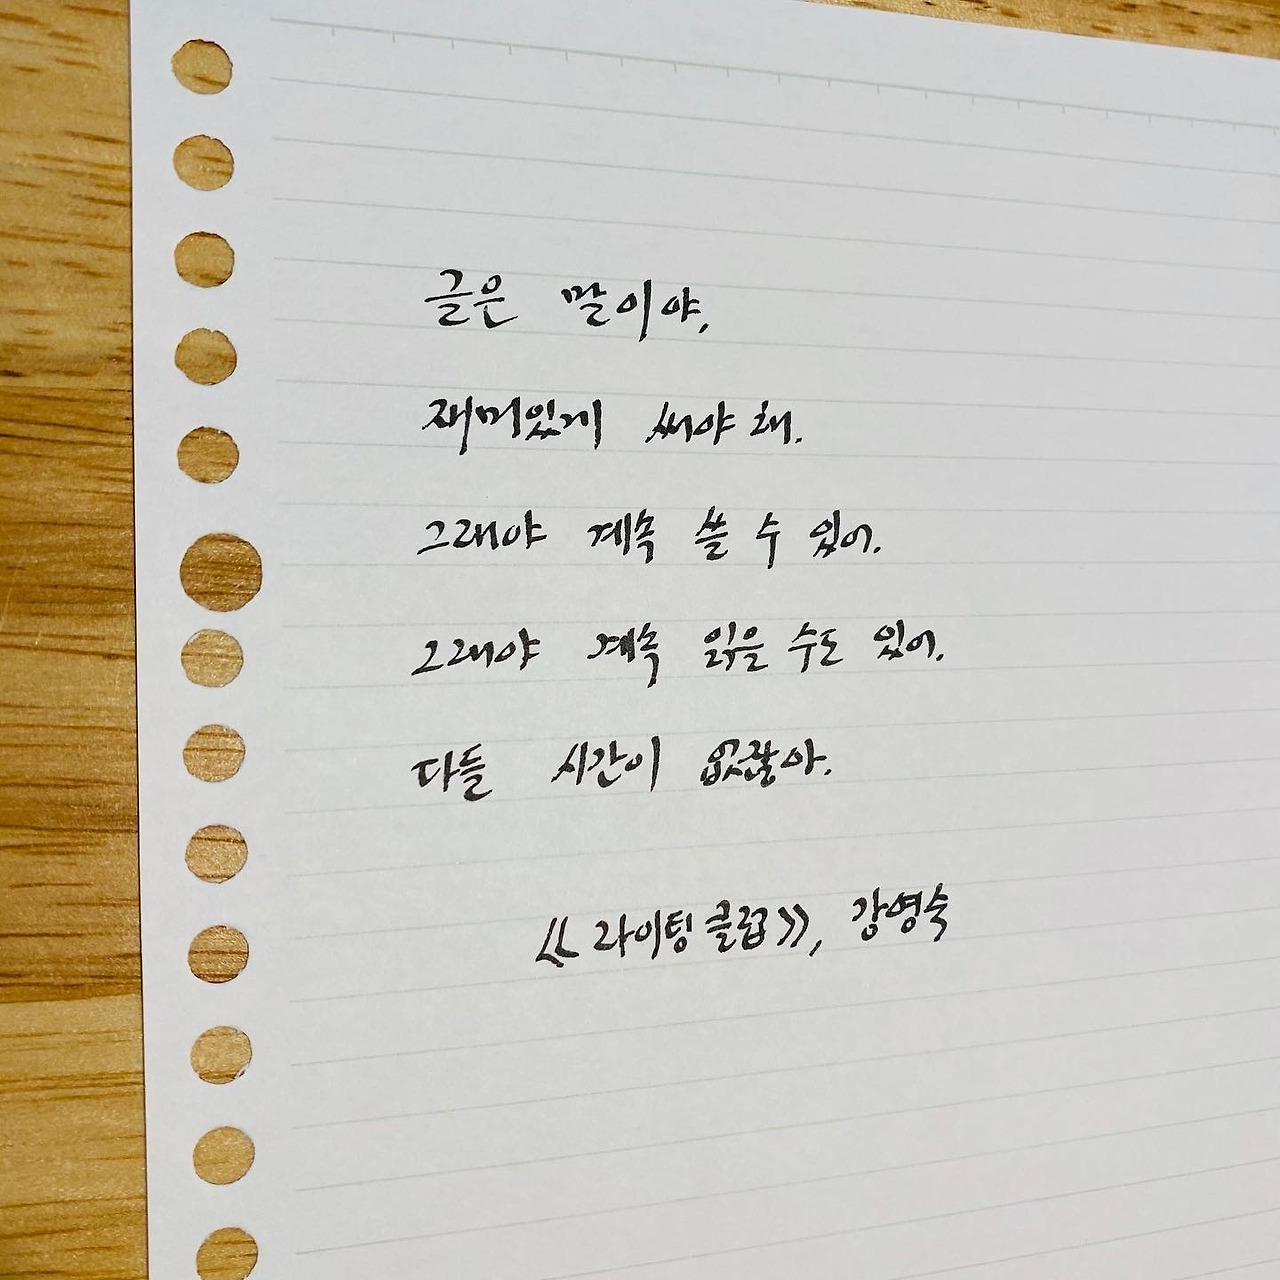 글은 말이야,
재미있게 써야 해.
그래야 계속 쓸 수 있어.
그래야 계속 읽을 수도 있어.
다들 시간이 없잖아.
《라이팅 클럽》, 강영숙